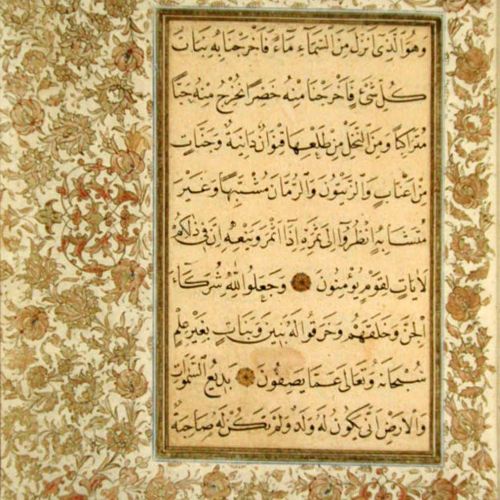 وَهُوَ الَّذِى اَنْزَلَ مِنَ السَّمَآءِ مَآءً فَاَخْرَجْنَا بِهِ نَبَاتَ
كُلِّ شَىْءٍ فَاَخْرَجْنَا مِنْهُ خَضِرًا نُخْرِجُ مِنْهُ حَبًّا
مُتَرَاكِبًا وَمِنَ النَّخْلِ مِنْ طَلْعِهَا قِنْوَانٌ دَانِيَةٌ وَجَنَّاتٍ
مِنْ اَعْنَابٍ وَالزَّيْتُونَ وَالرُّمَّانَ مُشْتَبِهًا وَغَيْرَ
مُتَشَابِهٍ اُنْظُرُوا اِلٰى ثَمَرِهِ اِذَا اَثْمَرَ وَيَنْعِهِ اِنَّ فِى ذٰلِكُمْ
لَاٰيَاتٍ لِقَوْمٍ يُؤْمِنُونَ وَجَعَلُوا لِلّٰهِ شُرَكَآءَ
الْجِنَّ وَخَلَقَهُمْ وَخَرَقُوا لَهُ بَنِينَ وَبَنَاتٍ بِغَيْرِ عِلْمٍ
سُبْحَانَهُ وَتَعَالٰى عَمَّا يَصِفُونَ بَدِيعُ السَّمٰوَاتِ
وَالْاَرْضِ اَنّٰى يَكُونُ لَهُ وَلَدٌ وَلَمْ تَكُنْ لَهُ صَاحِبَةٌ